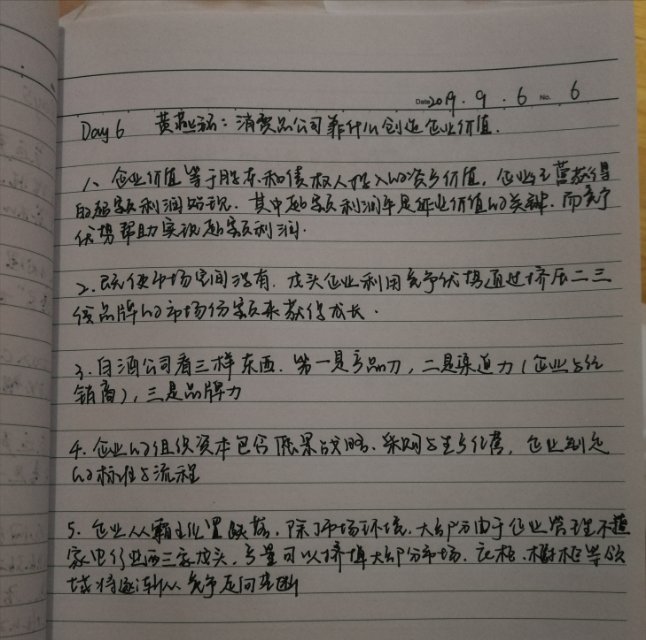 Date 2019.9.6 No. 6
Day 6 黄燕铭：消费品公司靠什么创造企业价值.
1、企业价值等于股东和债权人投入的资产价值，企业主营获得
的超额利润贴现. 其中超额利润率是企业价值的关键. 而竞争
优势帮助实现超额利润.
2. 既使市场空间没有. 龙头企业利用竞争优势通过挤压二三
线品牌的市场份额来获得成长.
3. 白酒公司看三样东西. 第一是产品力，二是渠道力（企业与经
销商），三是品牌力
4. 企业的组织资本包含 战略、采购与生产经营，企业制定
的标准与流程
5. 企业从霸主位置跌落，除了市场环境，大部分由于企业管理不善
家电行业两三家龙头，产量可以挤掉大部分市场. 橱柜等领
域将逐渐从竞争走向垄断